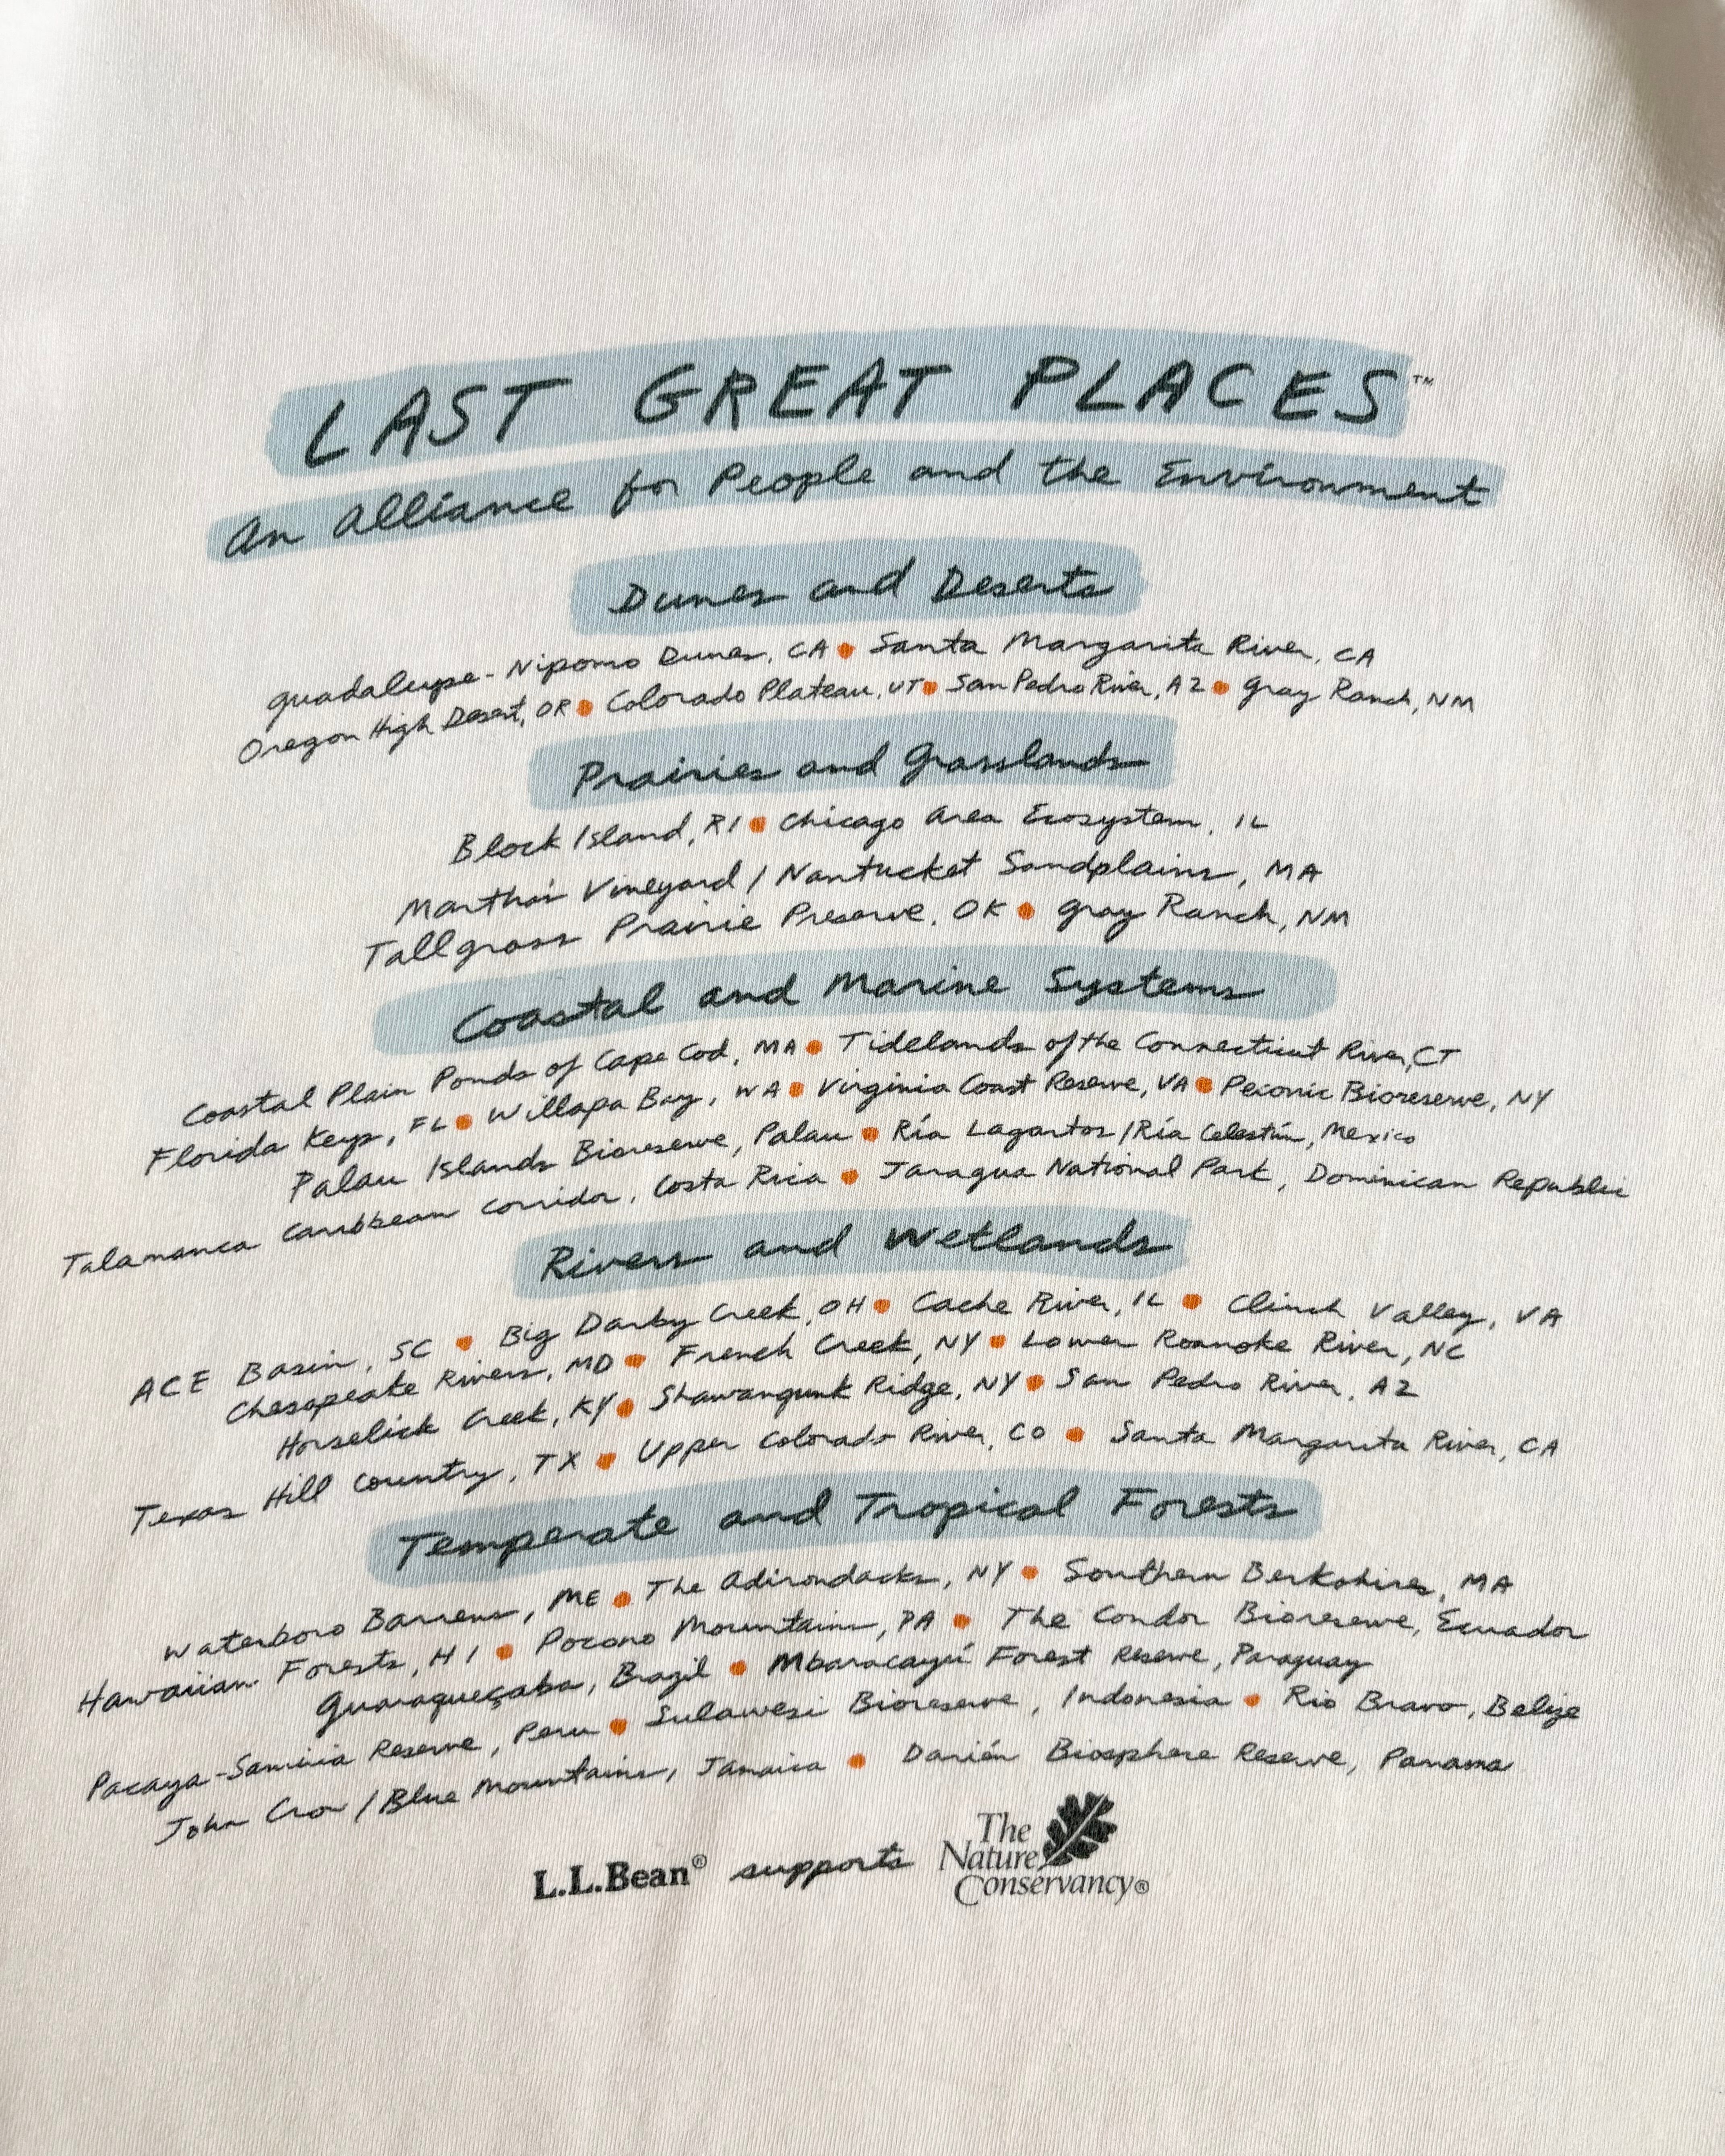 LAST GREAT PLACES™
An Alliance for People and the Environment
Dunes and Deserts
Guadalupe-Nipomo Dunes, CA • Santa Margarita River, CA
Oregon High Desert, OR • Colorado Plateau, UT • San Pedro River, AZ • Gray Ranch, NM
Prairies and Grasslands
Block Island, RI • Chicago Area Ecosystem, IL
Martha's Vineyard / Nantucket Sandplains, MA
Tallgrass Prairie Preserve, OK • Gray Ranch, NM
Coastal and Marine Systems
Coastal Plain Ponds of Cape Cod, MA • Tidelands of the Connecticut River, CT
Florida Keys, FL • Willapa Bay, WA • Virginia Coast Reserve, VA • Peconic Bioreserve, NY
Palau Islands Bioreserve, Palau • Ría Lagartos / Ría Celestún, Mexico
Talamanca Caribbean Corridor, Costa Rica • Jaragua National Park, Dominican Republic
Rivers and Wetlands
ACE Basin, SC • Big Darby Creek, OH • Cache River, IL • Clinch Valley, VA
Chesapeake Rivers, MD • French Creek, NY • Lower Roanoke River, NC
Horselick Creek, KY • Shawangunk Ridge, NY • San Pedro River, AZ
Texas Hill Country, TX • Upper Colorado River, CO • Santa Margarita River, CA
Temperate and Tropical Forests
Waterboro Barrens, ME • The Adirondacks, NY • Southern Berkshires, MA
Hawaiian Forests, HI • Pocono Mountains, PA • The Condor Bioreserve, Ecuador
Guaraqueçaba, Brazil • Mbaracayú Forest Reserve, Paraguay
Pacaya-Samiria Reserve, Peru • Sulawesi Bioreserve, Indonesia • Rio Bravo, Belize
John Crow / Blue Mountains, Jamaica • Darién Biosphere Reserve, Panama
L.L.Bean® supports The Nature Conservancy®